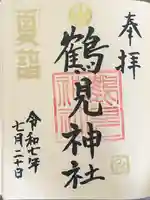 奉拝
鶴見神社
令和七年
七月二十日